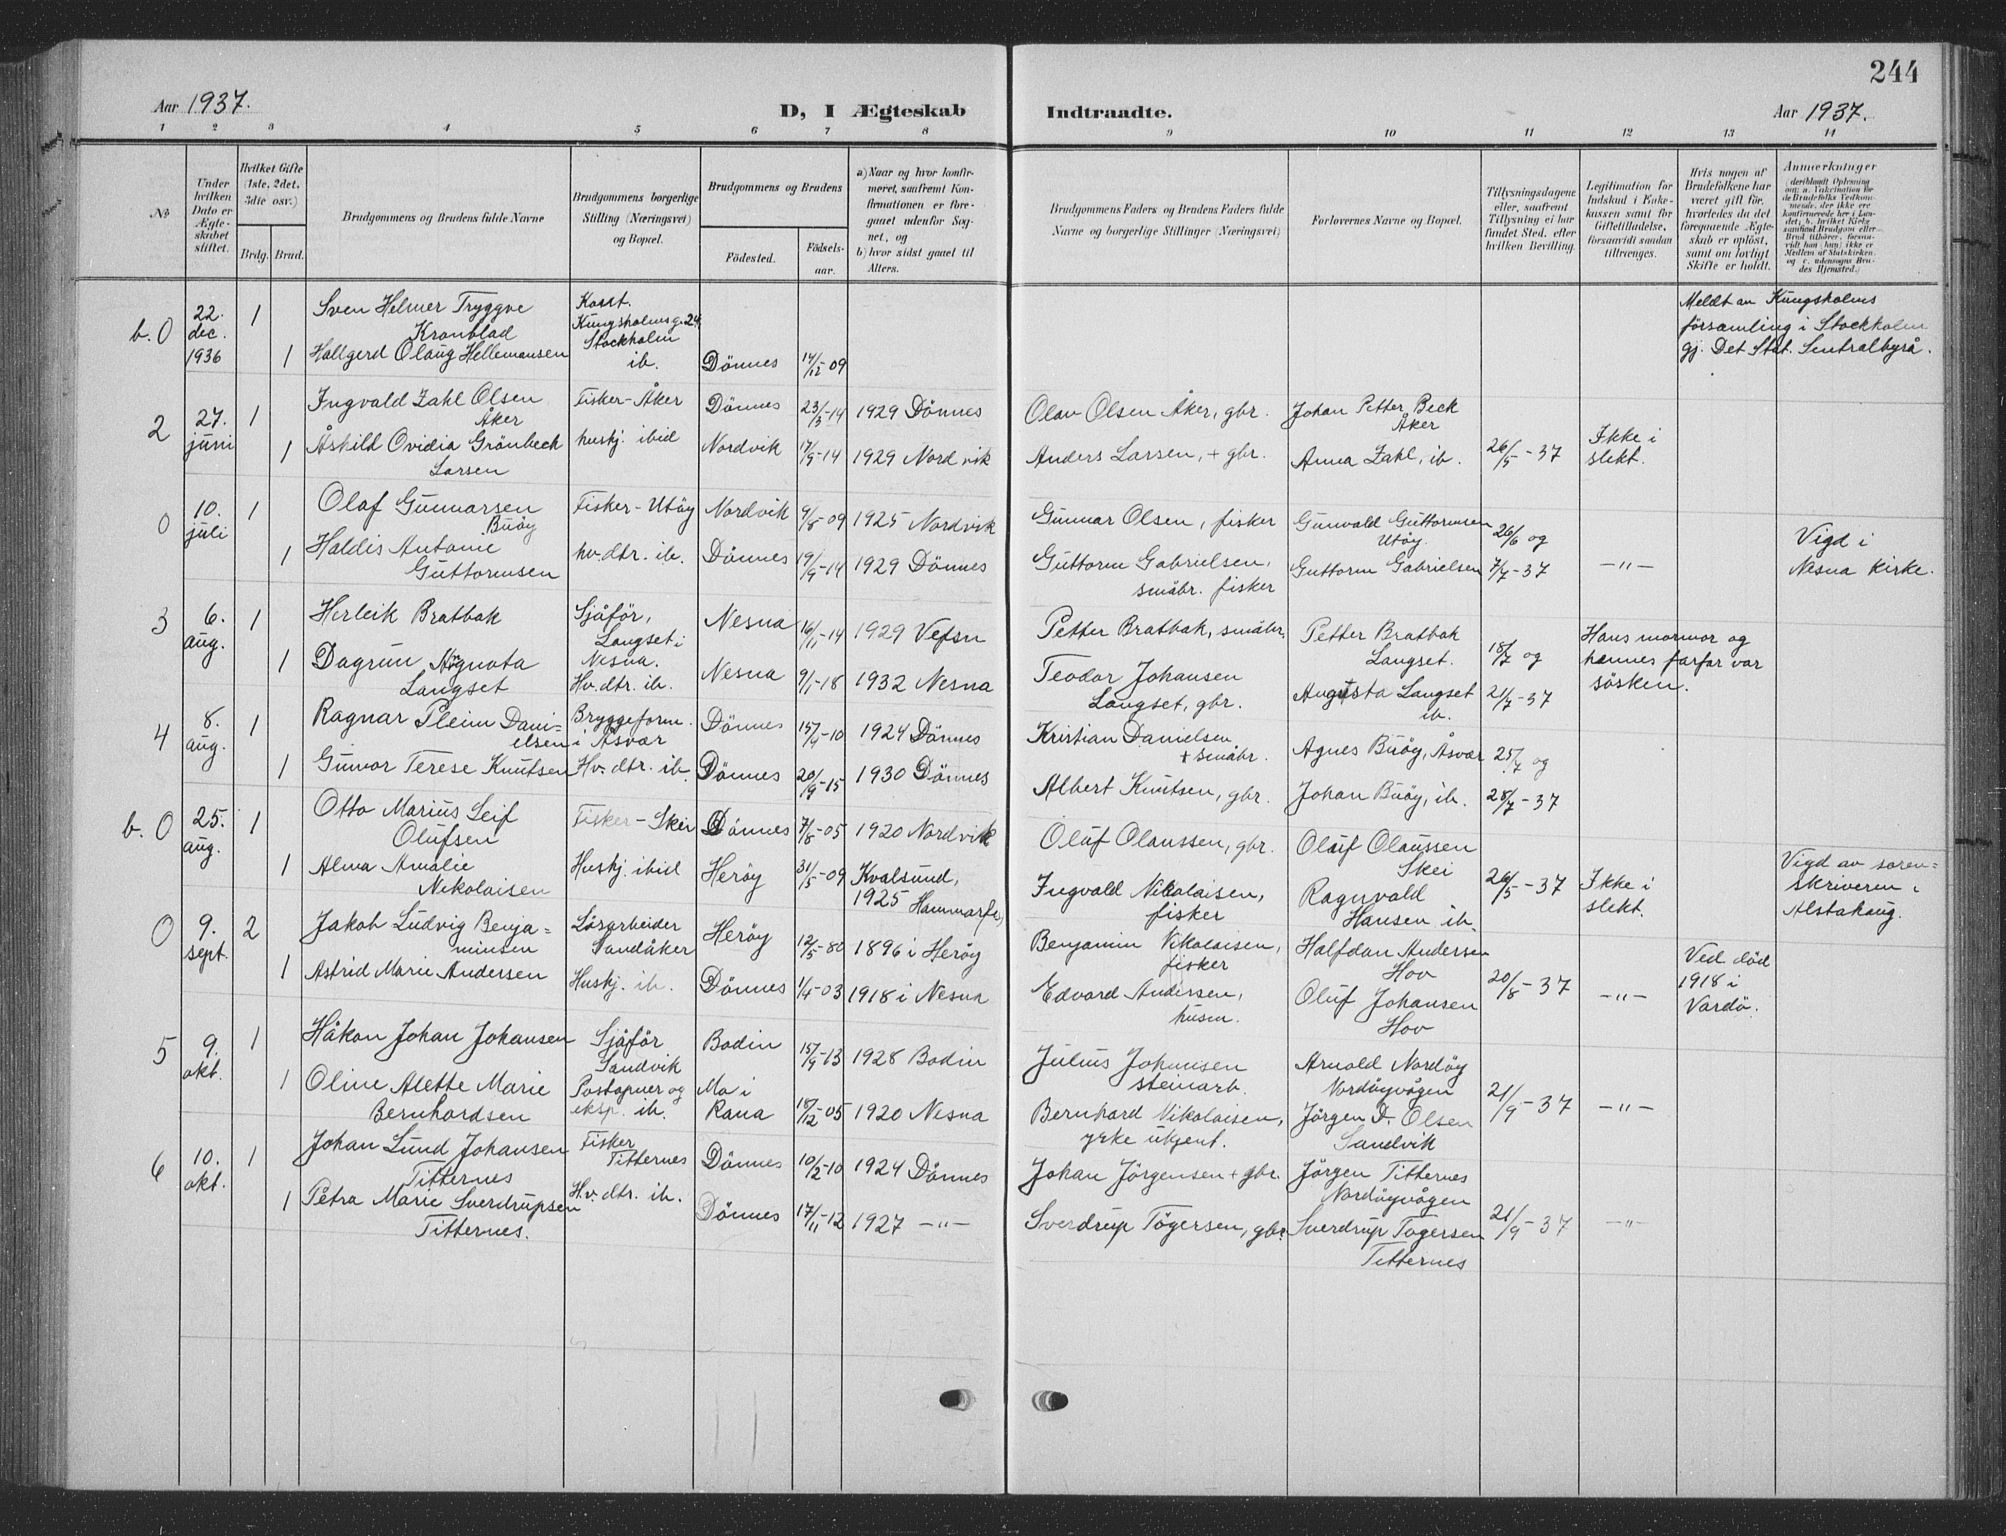 244
Aar 1937.
D, I Ægteskab Indtraadte.
Aar 1937.
1 2 3 4 5 6 7 8 9 10 11 12 13 14
No
Under hvilken Dato er Ægteskabet stiftet.
Hvilket Gifte (1ste, 2det, 3die osv.)
Brdg. Brud.
Brudgommens og Brudens fulde Navne
Brudgommens borgerlige Stilling (Næringsvei) og Bopæl.
Brudgommens og Brudens
Födested.
Födsels-aar.
a) Naar og hvor konfirmeret, saafremt Konfirmationen er foregaaet udenfor Sognet, og
b) hvor sidst gaaet til Alters.
Brudgommens Faders og Brudens Faders fulde Navne og borgerlige Stillinger (Næringsvei)
Forlovernes Navne og Bopæl.
Tillysningsdagene eller, saafremt Tillysning ei har fundet Sted, efter hvilken Bevilling.
Legitimation for Indskud i Enkekassen samt for Giftetilladelse, forsaavidt saadan tiltrænges.
Hvis nogen af Brudefolkene har været gift för, hvorledes da det foregaaende Ægteskab er oplöst, samt om lovligt Skifte er holdt.
Anmærkninger
b. 0 22. dec. 1936 1 Sven Helmer Tryggve Kronblad
Kungsholmsg. 24, Stockholm
1 Hallgerd Olaug Hellemansen ib. Dönnes 14/12-09
Meldt av Kungsholms
församling i Stockholm
gj. Det Stat. Sentralbyrå.
2 27. juni 1 Ingvald Zahl Olsen Åker Fisker-Åker Dönnes 23/3-14 1929 Dönnes Olav Olsen Åker, gbr. Johan Petter Beck Åker
1 Åshild Ovidia Grönbech Larsen huskj. ibid Nordvik 17/9-14 1929 Nordvik Anders Larsen, + gbr. Anna Zahl, ib. 26/5-37 Ikke i slekt.
0 10. juli 1 Olaf Gunnarsen Buöy Fisker-Utöy Nordvik 9/8-09 1925 Nordvik Gunnar Olsen, fisker Gunvald Guttormsen Utöy. 26/6 og
1 Haldis Antonie Guttormsen hv.dtr. ib. Dönnes 19/9-14 1929 Dönnes Guttorm Gabrielsen, småbr. fisker Guttorm Gabrielsen 7/7-37 -"- Vigd i Nesna kirke.
3 6. aug. 1 Herleik Bratbak Sjåför, Langset i Nesna. Nesna 16/11-14 1929 Vefsn Petter Bratbak, småbr. Petter Bratbak Langset. 18/7 og
1 Dagrun Langset Hv.dtr. ib. Nesna 9/1-18 1932 Nesna Teodor Johansen Langset, gbr. Augusta Langset ib. 21/7-37 Hans mormor og hennes farfar var sösken.
4 8. aug. 1 Ragnar Pleim Danielsen Bryggeform. i Åsvær Dönnes 15/9-10 1924 Dönnes Kristian Danielsen + småbr. Agnes Buöy, Åsvær 25/7 og
1 Gunvor Terese Knutsen Hv.dtr. ib. Dönnes 20/9-15 1930 Dönnes Albert Knutsen, gbr. Johan Buöy, ib. 28/7-37
b. 0 25. aug. 1 Otto Marius Leif Olufsen Fisker-Skei Dönnes 7/8-05 1920 Nordvik Oluf Olaussen, gbr. Oluf Olaussen Skei
1 Alma Amalie Nikolaisen Huskj. ibid Heröy 31/5-09 Kvalsund, 1925 Hammarf. Ingvald Nikolaisen, fisker Ragnvald Hansen ib. 26/5-37 Ikke i slekt. Vigd av sorenskriveren i Alstahaug.
0 9. sept. 2 Jakob Ludvig Benjaminsen Lösarbeider Sandåker Heröy 12/5-80 1896 i Heröy Benjamin Nikolaisen, fisker Halfdan Andersen Hov
1 Astrid Marie Andersen Huskj. ib. Dönnes 1/4-03 1918 i Nesna Edvard Andersen, husm. Oluf Johansen Hov 20/8-37 -"- Ved död 1918 i Vardö.
5 9. okt. 1 Håkon Johan Johansen Sjåför Sandvik Bodin 15/9-13 1928 Bodin Julius Johansen steinarb. Arnold Nordöy Nordöyvågen
1 Oline Alette Marie Bernhardsen Poståpner og eksp. ib. Mo i Rana 18/12-05 1920 Nesna Bernhard Nikolaisen, yrke ukjent. Jörgen D. Olsen Sandvik 21/9-37 -"-
6 10. okt. 1 Johan Lund Johansen Titternes Fisker Titternes Dönnes 10/2-10 1924 Dönnes Johan Jörgensen + gbr. Jörgen Titternes Nordöyvågen
1 Petra Marie Sverdrupsen Titternes. Hv.dtr. ib. Dönnes 17/11-12 1927 -"- Sverdrup Tögersen, gbr. Sverdrup Togersen Titternes 21/9-37 -"-